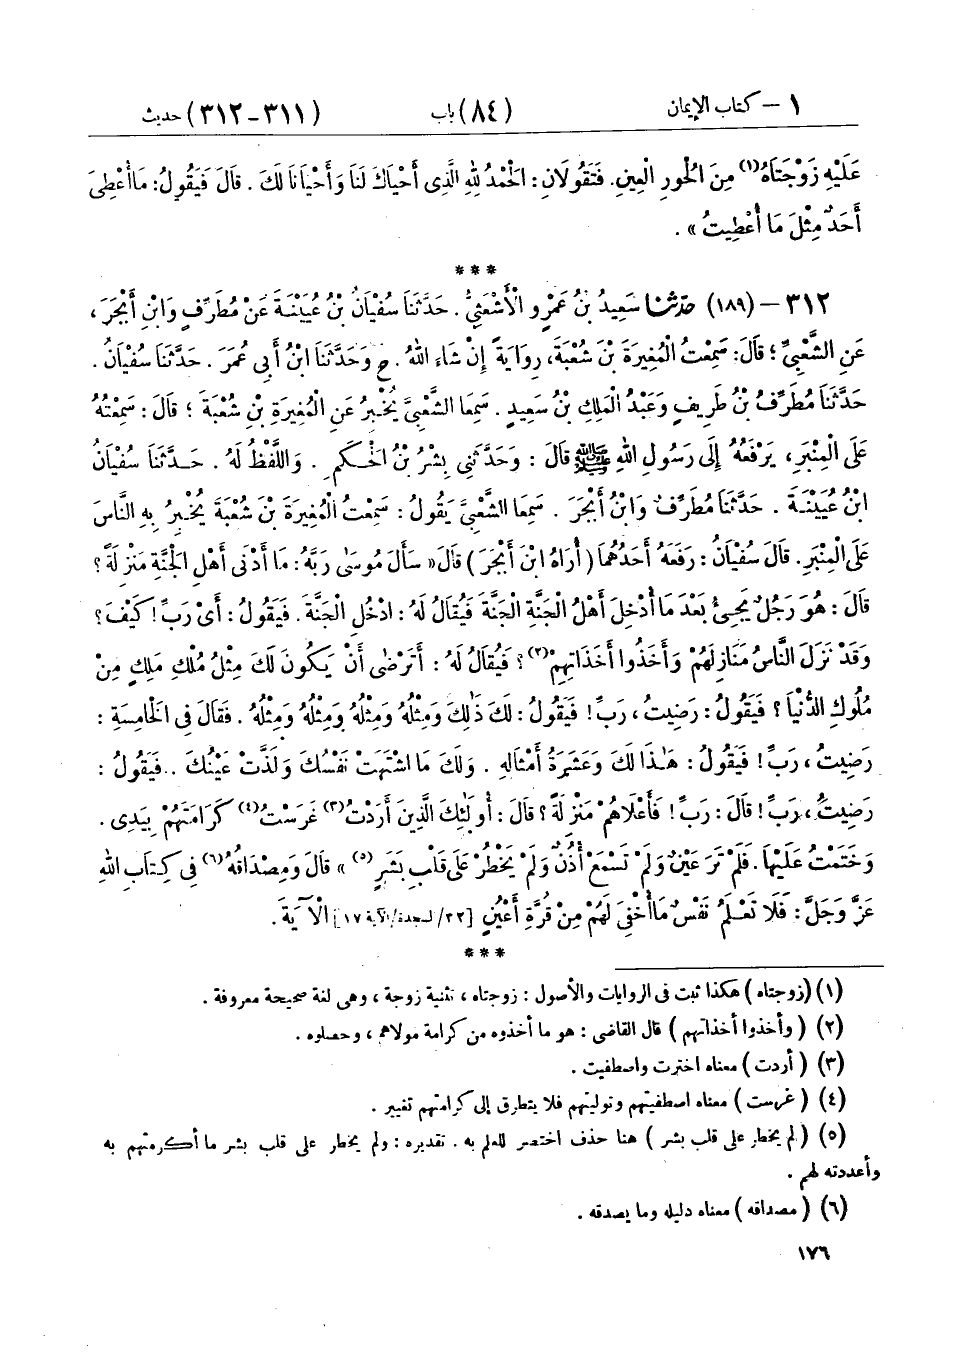 ١ - كتاب الإيمان (٨٤) باب (٣١١-٣١٢) حديث
عَلَيْهِ زَوْجَتَاهُ(١) مِنَ الْحُورِ الْعِينِ. فَتَقُولَانِ: الْحَمْدُ لِلهِ الَّذِى أَحْيَاكَ لَنَا وَأَحْيَانَا لَكَ. قَالَ فَيَقُولُ: مَا أُعْطِىَ
أَحَدٌ مِثْلَ مَا أُعْطِيتُ».
***
٣١٢ - (١٨٩) حَدَّثَنَا سَعِيدُ بْنُ عَمْرٍو الْأَشْعَثِيُّ. حَدَّثَنَا سُفْيَانُ بْنُ عُيَيْنَةَ عَنْ مُطَرِّفٍ وَابْنِ أَبْجَرَ،
عَنِ الشَّعْبِيِّ؛ قَالَ: سَمِعْتُ الْمُغِيرَةَ بْنَ شُعْبَةَ، رِوَايَةً إِنْ شَاءَ اللهُ. ح وَحَدَّثَنَا ابْنُ أَبِى عُمَرَ. حَدَّثَنَا سُفْيَانُ.
حَدَّثَنَا مُطَرِّفُ بْنُ طَرِيفٍ وَعَبْدُ الْمَلِكِ بْنُ سَعِيدٍ. سَمِعَا الشَّعْبِيَّ يُخْبِرُ عَنِ الْمُغِيرَةِ بْنِ شُعْبَةَ؛ قَالَ: سَمِعْتُهُ
عَلَى الْمِنْبَرِ، يَرْفَعُهُ إِلَى رَسُولِ اللهِ ﷺ قَالَ: وَحَدَّثَنِى بِشْرُ بْنُ الْحَكَمِ. وَاللَّفْظُ لَهُ. حَدَّثَنَا سُفْيَانُ
ابْنُ عُيَيْنَةَ. حَدَّثَنَا مُطَرِّفٌ وَابْنُ أَبْجَرَ. سَمِعَا الشَّعْبِيَّ يَقُولُ: سَمِعْتُ الْمُغِيرَةَ بْنَ شُعْبَةَ يُخْبِرُ بِهِ النَّاسَ
عَلَى الْمِنْبَرِ. قَالَ سُفْيَانُ: رَفَعَهُ أَحَدُهُمَا (أُرَاهُ ابْنَ أَبْجَرَ) قَالَ «سَأَلَ مُوسَى رَبَّهُ: مَا أَدْنَى أَهْلِ الْجَنَّةِ مَنْزِلَةً؟
قَالَ: هُوَ رَجُلٌ يَجِىءُ بَعْدَ مَا أُدْخِلَ أَهْلُ الْجَنَّةِ الْجَنَّةَ فَيُقَالُ لَهُ: ادْخُلِ الْجَنَّةَ. فَيَقُولُ: أَىْ رَبِّ! كَيْفَ؟
وَقَدْ نَزَلَ النَّاسُ مَنَازِلَهُمْ وَأَخَذُوا أَخَذَاتِهِمْ(٢)؟ فَيُقَالُ لَهُ: أَتَرْضَى أَنْ يَكُونَ لَكَ مِثْلُ مُلْكِ مَلِكٍ مِنْ
مُلُوكِ الدُّنْيَا؟ فَيَقُولُ: رَضِيتُ، رَبِّ! فَيَقُولُ: لَكَ ذَلِكَ وَمِثْلُهُ وَمِثْلُهُ وَمِثْلُهُ وَمِثْلُهُ. فَقَالَ فِى الْخَامِسَةِ:
رَضِيتُ، رَبِّ! فَيَقُولُ: هَذَا لَكَ وَعَشَرَةُ أَمْثَالِهِ. وَلَكَ مَا اشْتَهَتْ نَفْسُكَ وَلَذَّتْ عَيْنُكَ. فَيَقُولُ:
رَضِيتُ، رَبِّ! قَالَ: رَبِّ! فَأَعْلَاهُمْ مَنْزِلَةً؟ قَالَ: أُولَئِكَ الَّذِينَ أَرَدْتُ(٣) غَرَسْتُ(٤) كَرَامَتَهُمْ بِيَدِى.
وَخَتَمْتُ عَلَيْهَا. فَلَمْ تَرَ عَيْنٌ وَلَمْ تَسْمَعْ أُذُنٌ وَلَمْ يَخْطُرْ عَلَى قَلْبِ بَشَرٍ(٥)» قَالَ وَمِصْدَاقُهُ(٦) فِى كِتَابِ اللهِ
عَزَّ وَجَلَّ: فَلَا تَعْلَمُ نَفْسٌ مَا أُخْفِىَ لَهُمْ مِنْ قُرَّةِ أَعْيُنٍ [٣٢/السجدة/الآية ١٧] الْآيَةَ.
***
(١) (زوجتاه) هكذا ثبت فى الروايات والأصول: زوجتاه، تثنية زوجة، وهى لغة صحيحة معروفة.
(٢) (وأخذوا أخذاتهم) قال القاضى: هو ما أخذوه من كرامة مولاهم، وحصلوه.
(٣) (أردت) معناه اخترت واصطفيت.
(٤) (غرست) معناه اصطفيتهم وتوليتهم فلا يتطرق إلى كرامتهم تغيير.
(٥) (لم يخطر على قلب بشر) هنا حذف اختصر للعلم به. تقديره: ولم يخطر على قلب بشر ما أكرمتهم به
وأعددته لهم.
(٦) (مصداقه) معناه دليله وما يصدقه.
١٧٦